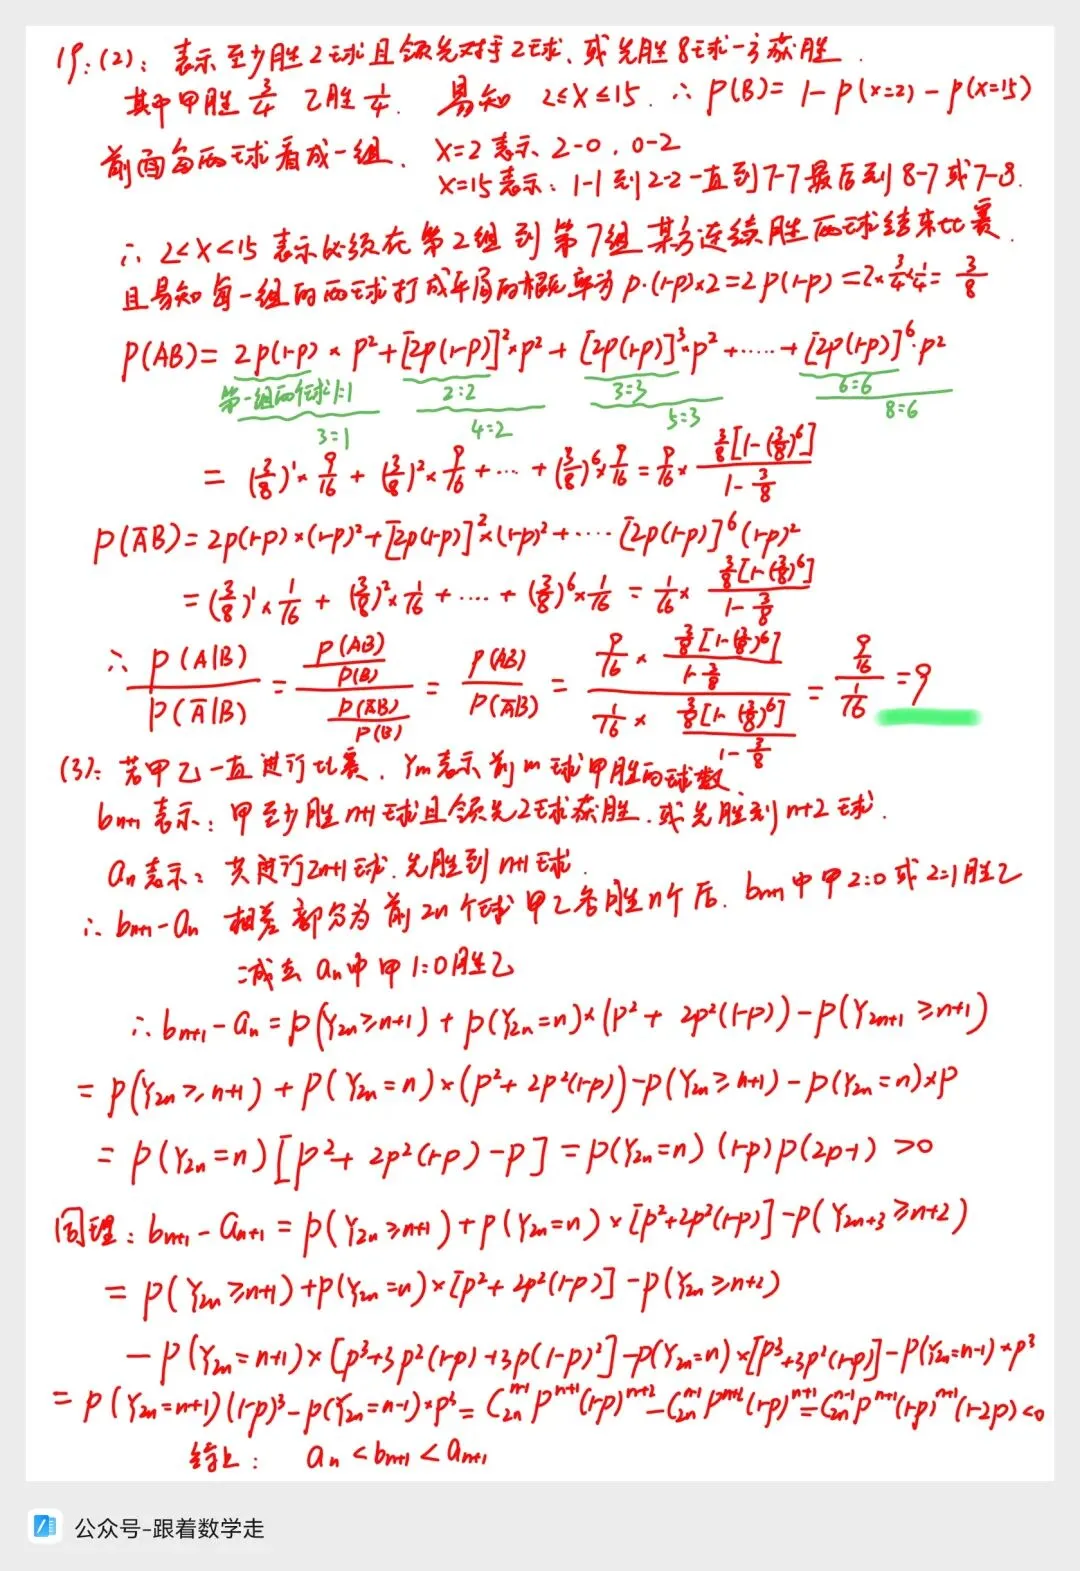 19.(2): 表示至少胜2球且领先对手2球、或先胜8球一方获胜.
其中甲胜 3/4 乙胜 1/4. 易知 2≤X≤15. ∴ P(B)= 1-P(X=2)-P(X=15)
前面每两球看成一组. X=2表示 2-0. 0-2
X=15表示: 1-1到2-2一直到7-7最后到8-7或7-8.
∴ 2<X<15 表示必须在第2组到第7组某方连续胜两球结束比赛.
且易知每一组的两球打成平局的概率为 p·(1-p)×2=2p(1-p)=2×3/4×1/4=3/8
P(AB)= 2p(1-p)×p²+[2p(1-p)]²×p²+[2p(1-p)]³×p²+……+[2p(1-p)]⁶·p²
第一组两个球1:1 2:2 3=3 6=6
3=1 4=2 5=3 8=6
= (3/8)¹×9/16+(3/8)²×9/16+…+(3/8)⁶×9/16=9/16×(3/8[1-(3/8)⁶])/(1-3/8)
P(ĀB)=2p(1-p)×(1-p)²+[2p(1-p)]²×(1-p)²+····[2p(1-p)]⁶(1-p)²
=(3/8)¹×1/16+(3/8)²×1/16+····+(3/8)⁶×1/16=1/16×(3/8[1-(3/8)⁶])/(1-3/8)
∴ P(A|B)/P(Ā|B)=(P(AB)/P(B))/(P(ĀB)/P(B))=P(AB)/P(ĀB)=(9/16×(3/8[1-(3/8)⁶])/(1-3/8))/(1/16×(3/8[1-(3/8)⁶])/(1-3/8))=(9/16)/(1/16)=9
(3): 若甲乙一直进行比赛. Ym表示前m球甲胜的球数
bn+1表示: 甲至少胜n+1球且领先2球获胜.或先胜到n+2球.
an表示: 共进行2n+1球.先胜到n+1球.
∴ bn+1-an 相差部分为前2n个球甲乙各胜n个后. bn+1中甲2:0或2=1胜乙
减去an中甲1:0胜乙
∴ bn+1-an=P(Y2n≥n+1)+P(Y2n=n)×(p²+2p²(1-p))-P(Y2n+1≥n+1)
=P(Y2n≥n+1)+P(Y2n=n)×(p²+2p²(1-p))-P(Y2n≥n+1)-P(Y2n=n)×p
=P(Y2n=n)[p²+2p²(1-p)-p]=P(Y2n=n)(1-p)p(2p-1)>0
同理: bn+1-an+1=P(Y2n≥n+1)+P(Y2n=n)×[p²+2p²(1-p)]-P(Y2n+3≥n+2)
=P(Y2n≥n+1)+P(Y2n=n)×[p²+2p²(1-p)]-P(Y2n≥n+2)
-P(Y2n=n+1)×[p³+3p²(1-p)+3p(1-p)²]-P(Y2n=n)×[p³+3p²(1-p)]-P(Y2n=n-1)×p³
=P(Y2n=n+1)(1-p)³-P(Y2n=n-1)×p³=C2nⁿ⁺¹pⁿ⁺¹(1-p)ⁿ⁺²-C2nⁿ⁻¹pⁿ⁺²(1-p)ⁿ⁺¹=C2nⁿ⁻¹pⁿ⁺¹(1-p)ⁿ⁺¹(1-2p)<0
综上: an<bn+1<an+1
公众号-跟着数学走